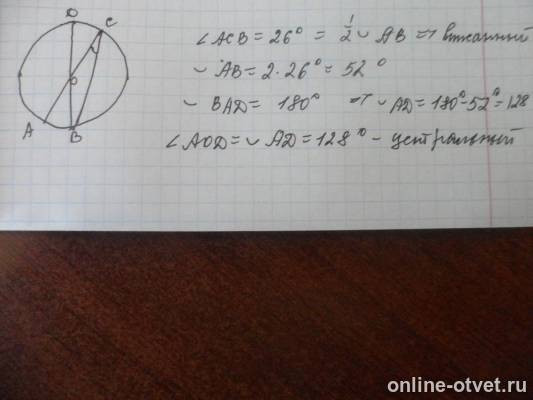 D
C
O
A
B
∠ACB = 26° = 1/2 ◡ AB ⇒ вписанный
◡ AB = 2 · 26° = 52°
◡ BAD = 180° ⇒ ◡ AD = 180° - 52° = 128
∠AOD = ◡ AD = 128° - центральный
online-otvet.ru